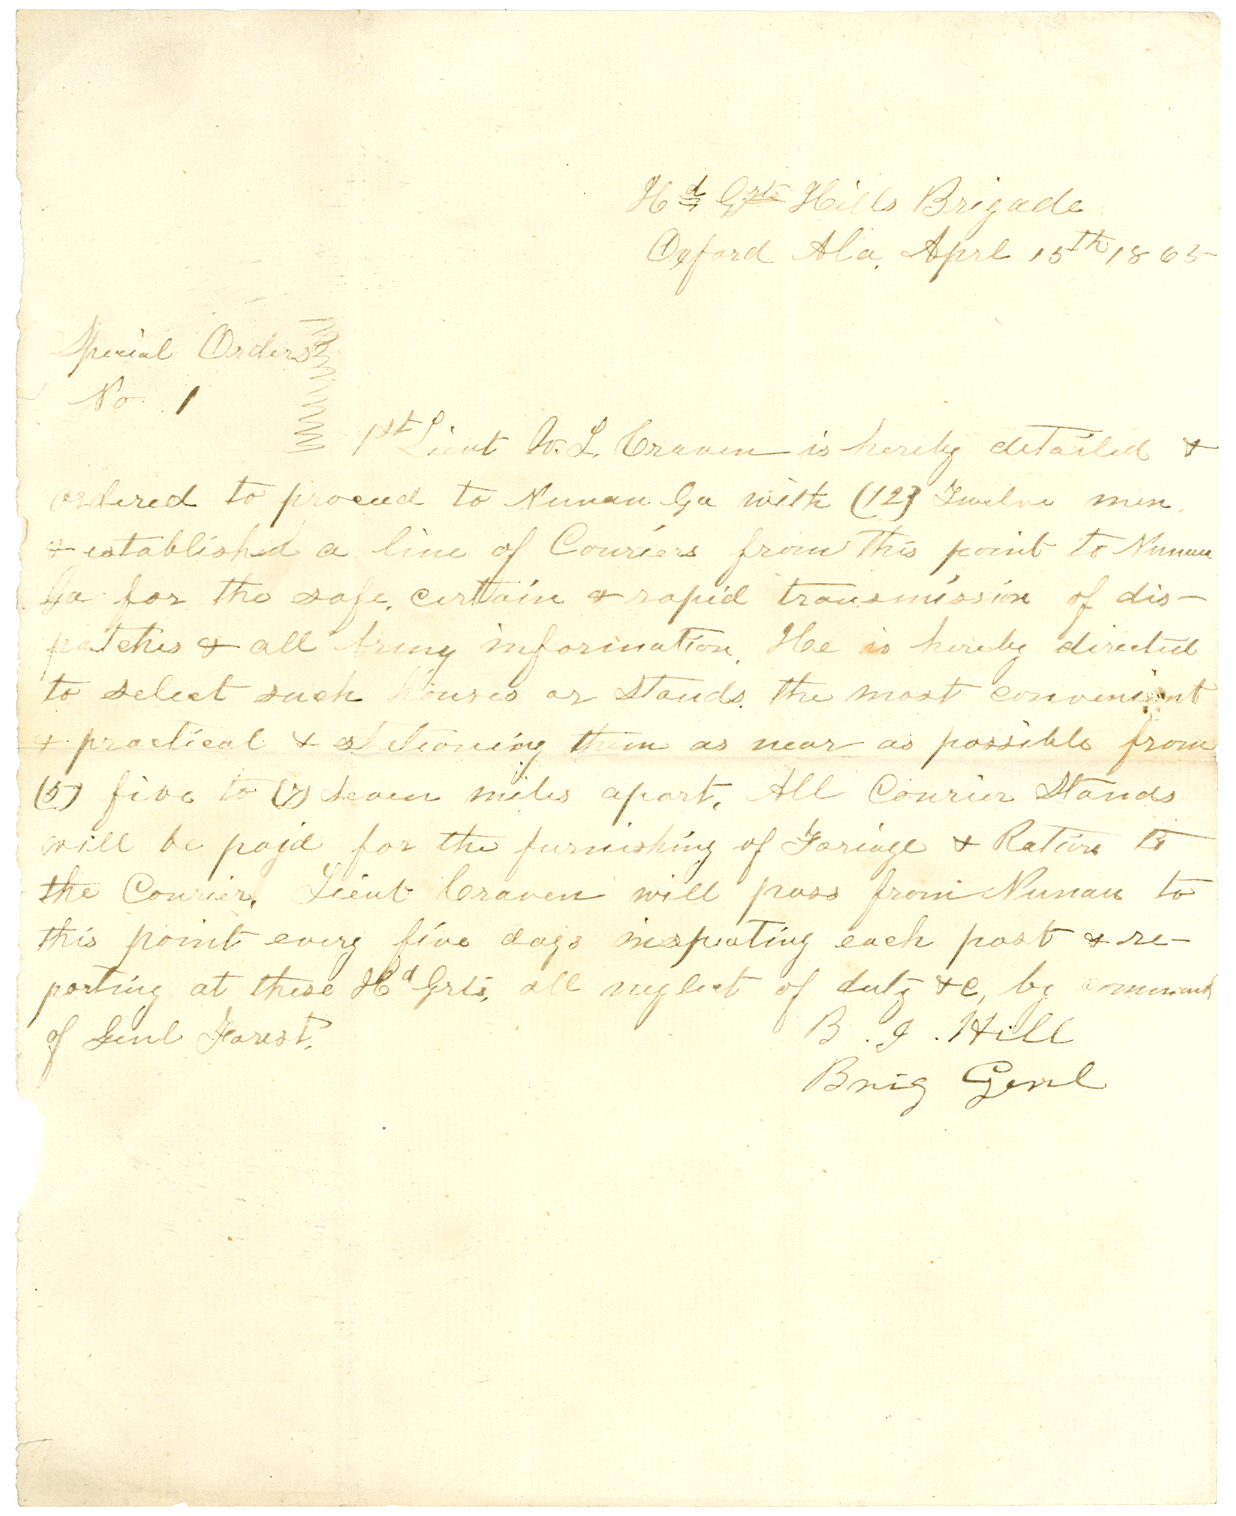 Hd Qrts Hills Brigade
Oxford Ala. Aprl 15th 1865
Special Orders
No 1
1st Lieut W. L. Craven is hereby detailed &
ordered to proceed to Nunan Ga with (12) Twelve men
& established a line of Couriers from this point to Nunan
Ga for the safe, certain & rapid transmission of dis-
patches & all Army information. He is hereby directed
to select such houses or Stands the most convenient
& practical & stationing them as near as possible from
(5) five to (7) Seven miles apart. All Courier Stands
will be paid for the furnishing of Foriage & Rations to
the Courier. Lieut Craven will pass from Nunan to
this point every five days inspecting each post & re-
porting at these Hd Qrts, all neglect of duty &c, by command
of Genl Forest.
B. J. Hill
Brig Genl